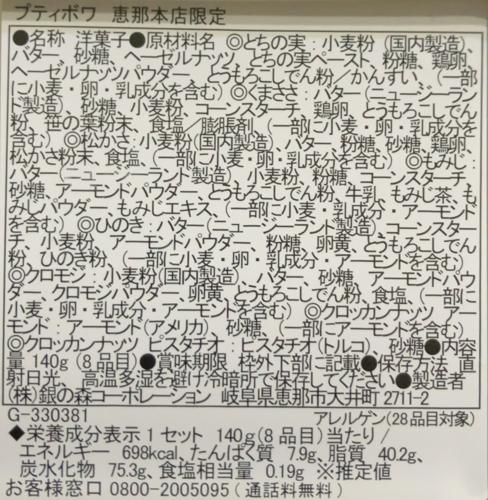 プティボワ 恵那本店限定
●名称 洋菓子●原材料名 ◎とちの実:小麦粉(国内製造)、
バター、砂糖、ヘーゼルナッツ、とちの実ペースト、粉糖、鶏卵、
ヘーゼルナッツパウダー、とうもろこしでん粉/かんすい、(一部
に小麦・卵・乳成分を含む)◎くまささ:バター(ニュージーラン
ド製造)、砂糖、小麦粉、コーンスターチ、鶏卵、とうもろこしでん
粉、笹の葉粉末、食塩/膨脹剤、(一部に小麦・卵・乳成分を
含む)◎松かさ:小麦粉(国内製造)、バター、粉糖、砂糖、鶏卵、
松かさ粉末、食塩、(一部に小麦・卵・乳成分を含む)◎もみじ:
バター(ニュージーランド製造)、小麦粉、粉糖、コーンスターチ、
砂糖、アーモンドパウダー、とうもろこしでん粉、牛乳、もみじ茶、も
みじパウダー、もみじエキス、(一部に小麦・乳成分・アーモンド
を含む)◎ひのき:バター(ニュージーランド製造)、コーンスター
チ、小麦粉、アーモンドパウダー、粉糖、卵黄、とうもろこしでん
粉、ひのき粉、(一部に小麦・卵・乳成分・アーモンドを含む)
◎クロモン:小麦粉(国内製造)、バター、砂糖、アーモンドパウ
ダー、クロモジパウダー、卵黄、とうもろこしでん粉、食塩、(一部に
小麦・卵・乳成分・アーモンドを含む)◎クロッカンナッツ アーモ
ンド:アーモンド(アメリカ)、砂糖、(一部にアーモンドを含む)
◎クロッカンナッツ ピスタチオ:ピスタチオ(トルコ)、砂糖●内容
量 140g(8品目)●賞味期限 枠外下部に記載●保存方法 直
射日光、高温多湿を避け冷暗所で保存してください●製造者
(株)銀の森コーポレーション 岐阜県恵那市大井町2711-2
G-330381 アレルゲン(28品目対象)
◆栄養成分表示1セット 140g(8品目)当たり/
エネルギー 698kcal、たんぱく質 7.9g、脂質 40.2g、
炭水化物 75.3g、食塩相当量 0.19g ※推定値
お客様窓口 0800-2005095(通話料無料)